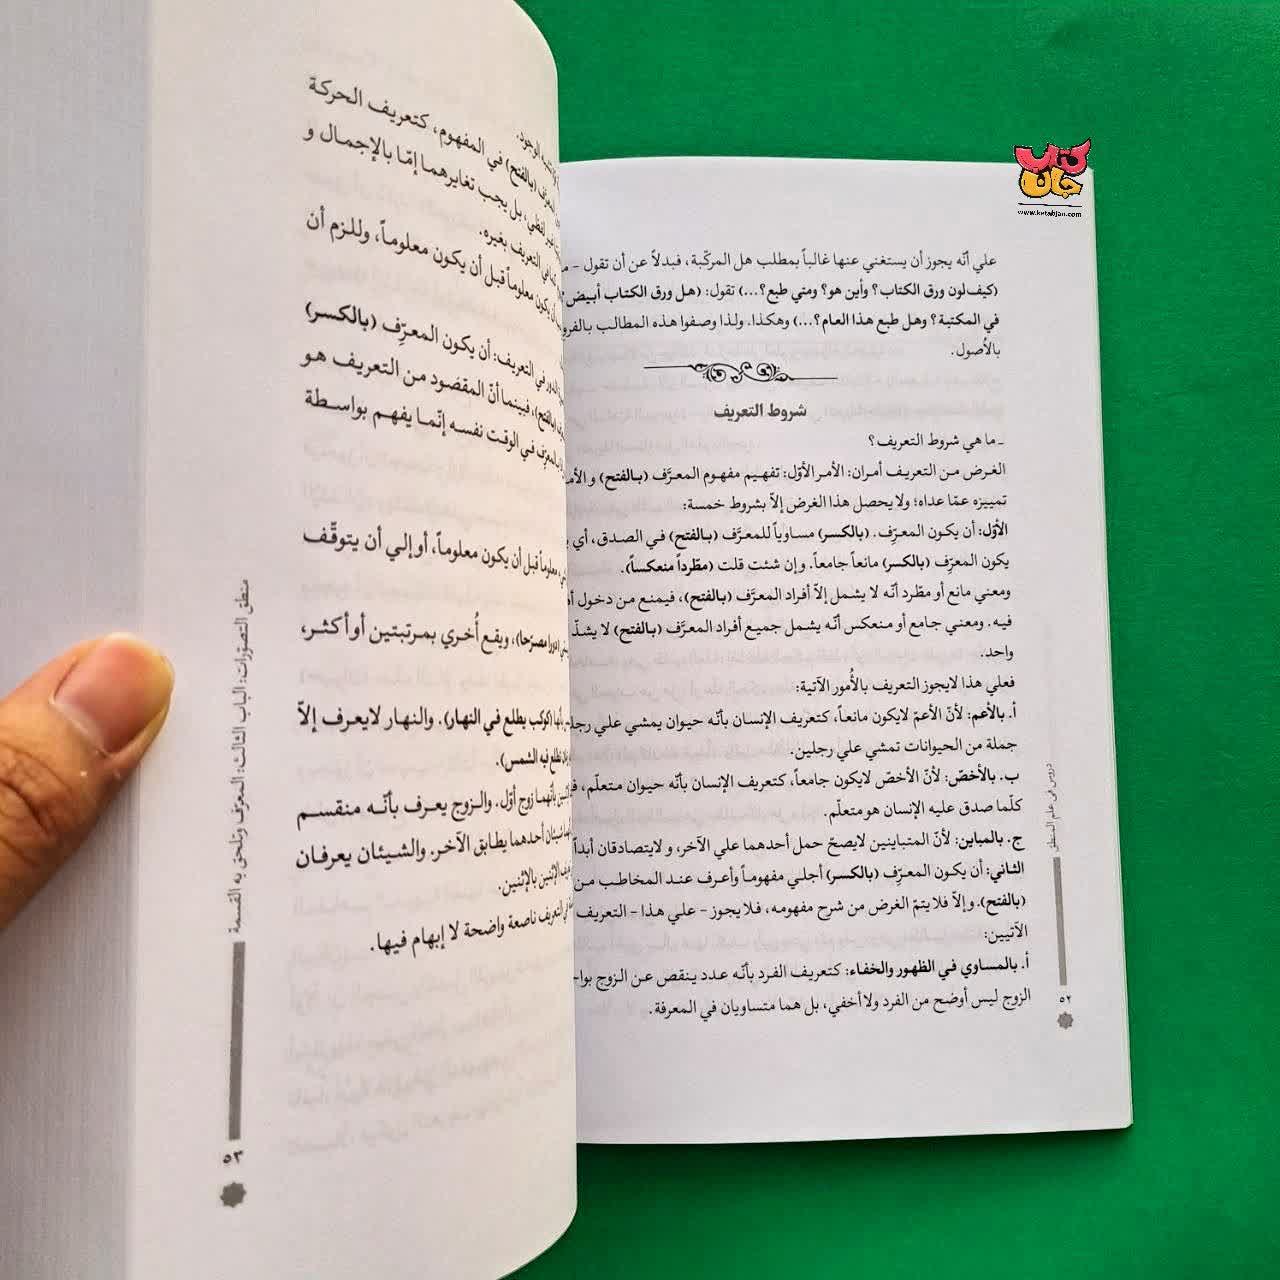 كتاب
جان
www.ketabjan.com
علي أنّه يجوز أن يستغني عنها غالباً بمطلب هل المركّبة، فبدلاً عن أن تقول -
(كيف لون ورق الكتاب؟ وأين هو؟ ومتي طبع؟...) تقول: (هل ورق الكتاب أبيض؟
في المكتبة؟ وهل طبع هذا العام؟...) وهكذا. ولذا وصفوا هذه المطالب
بالأُصول.
شروط التعريف
ـ ما هي شروط التعريف؟
الغرض من التعريف أمران: الأمر الأوّل: تفهيم مفهوم المعرَّف (بالفتح) و
تمييزه عمّا عداه؛ ولا يحصل هذا الغرض إلاّ بشروط خمسة:
الأوّل: أن يكون المعرِّف. (بالكسر) مساوياً للمعرَّف (بالفتح) في الصدق، أي
يكون المعرِّف (بالكسر) مانعاً جامعاً. وإن شئت قلت (مطّرداً منعكساً).
ومعني مانع أو مطّرد أنّه لا يشمل إلاّ أفراد المعرَّف (بالفتح)، فيمنع من دخول
فيه. ومعني جامع أو منعكس أنّه يشمل جميع أفراد المعرَّف (بالفتح) لا يشذّ
واحد.
فعلي هذا لايجوز التعريف بالأُمور الآتية:
أ. بالأعم: لأنّ الأعمّ لايكون مانعاً، كتعريف الإنسان بأنّه حيوان يمشي علي
جملة من الحيوانات تمشي علي رجلين.
ب. بالأخصّ: لأنّ الأخصّ لايكون جامعاً، كتعريف الإنسان بأنّه حيوان متعلّم،
كلّما صدق عليه الإنسان هو متعلّم.
ج. بالمباين: لأنّ المتباينين لايصحّ حمل أحدهما علي الآخر، و لايتصادقان أبداً
الثاني: أن يكون المعرِّف (بالكسر) أجلي مفهوماً وأعرف عند المخاطب من
(بالفتح). وإلاّ فلا يتمّ الغرض من شرح مفهومه، فلا يجوز - علي هذا - التعريف
الآتيين:
أ. بالمساوي في الظهور والخفاء: كتعريف الفرد بأنّه عدد ينقص عن الزوج
الزوج ليس أوضح من الفرد ولا أخفي، بل هما متساويان في المعرفة.
دروس في علم المنطق
٥٢
الوجود.
(بالفتح) في المفهوم، كتعريف الحركة
لفظي، بل يجب تغايرهما إمّا بالإجمال و
التعريف بغيره.
أن يكون معلوماً قبل أن يكون معلوماً، وللزم أن
الدور في التعريف: أن يكون المعرِّف (بالكسر)
(بالفتح)، فبينما أنّ المقصود من التعريف هو
المعرّف في الوقت نفسه إنّما يفهم بواسطة
معلوماً قبل أن يكون معلوماً، أو إلي أن يتوقّف
(دورا مصرّحا)، ويقع أُخري بمرتبتين أو أكثر،
(كوكب يطلع في النهار). والنهار لايعرف إلاّ
تطلع فيه الشمس).
بأنّهما زوج أوّل. والزوج يعرف بأنّه منقسم
شيئان أحدهما يطابق الآخر. والشيئان يعرفان
الإثنين بالإثنين.
التعريف ناصعة واضحة لا إبهام فيها.
منطق التصوّرات: الباب الثالث: المعرّف وتلحق به القسمة
٥٣